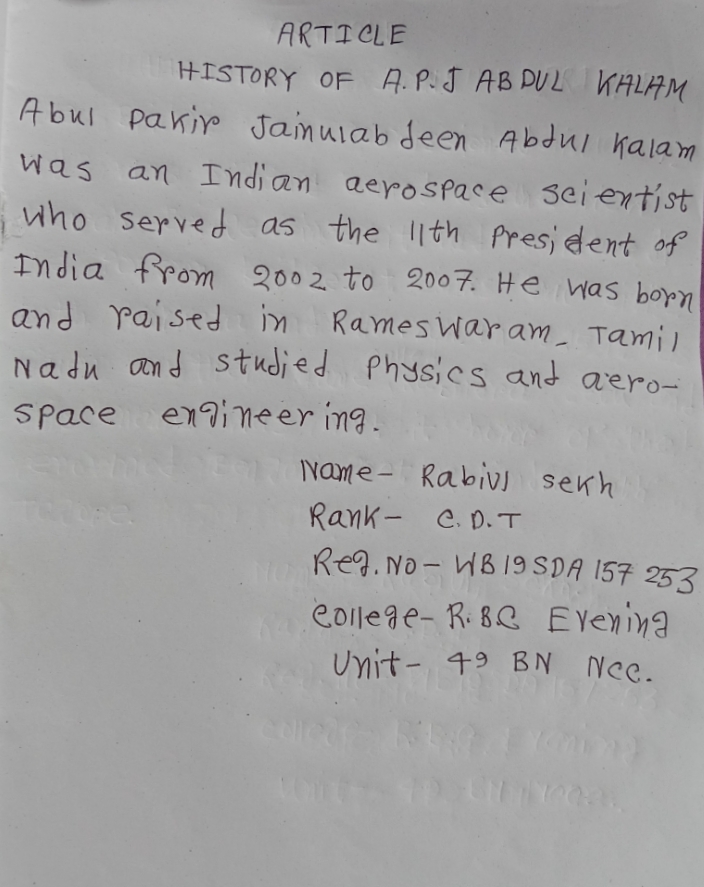 ARTICLE
HISTORY OF A.P.J ABDUL KALAM
Abul Pakir Jainulabdeen Abdul Kalam
was an Indian aerospace scientist
who served as the 11th President of
India from 2002 to 2007. He was born
and raised in Rameswaram, Tamil
Nadu and studied Physics and aero-
space engineering.
Name- Rabiul Sekh
Rank- C.D.T
Reg.No- WB19SDA 157 253
College- R.BC Evening
Unit- 49 BN NCC.